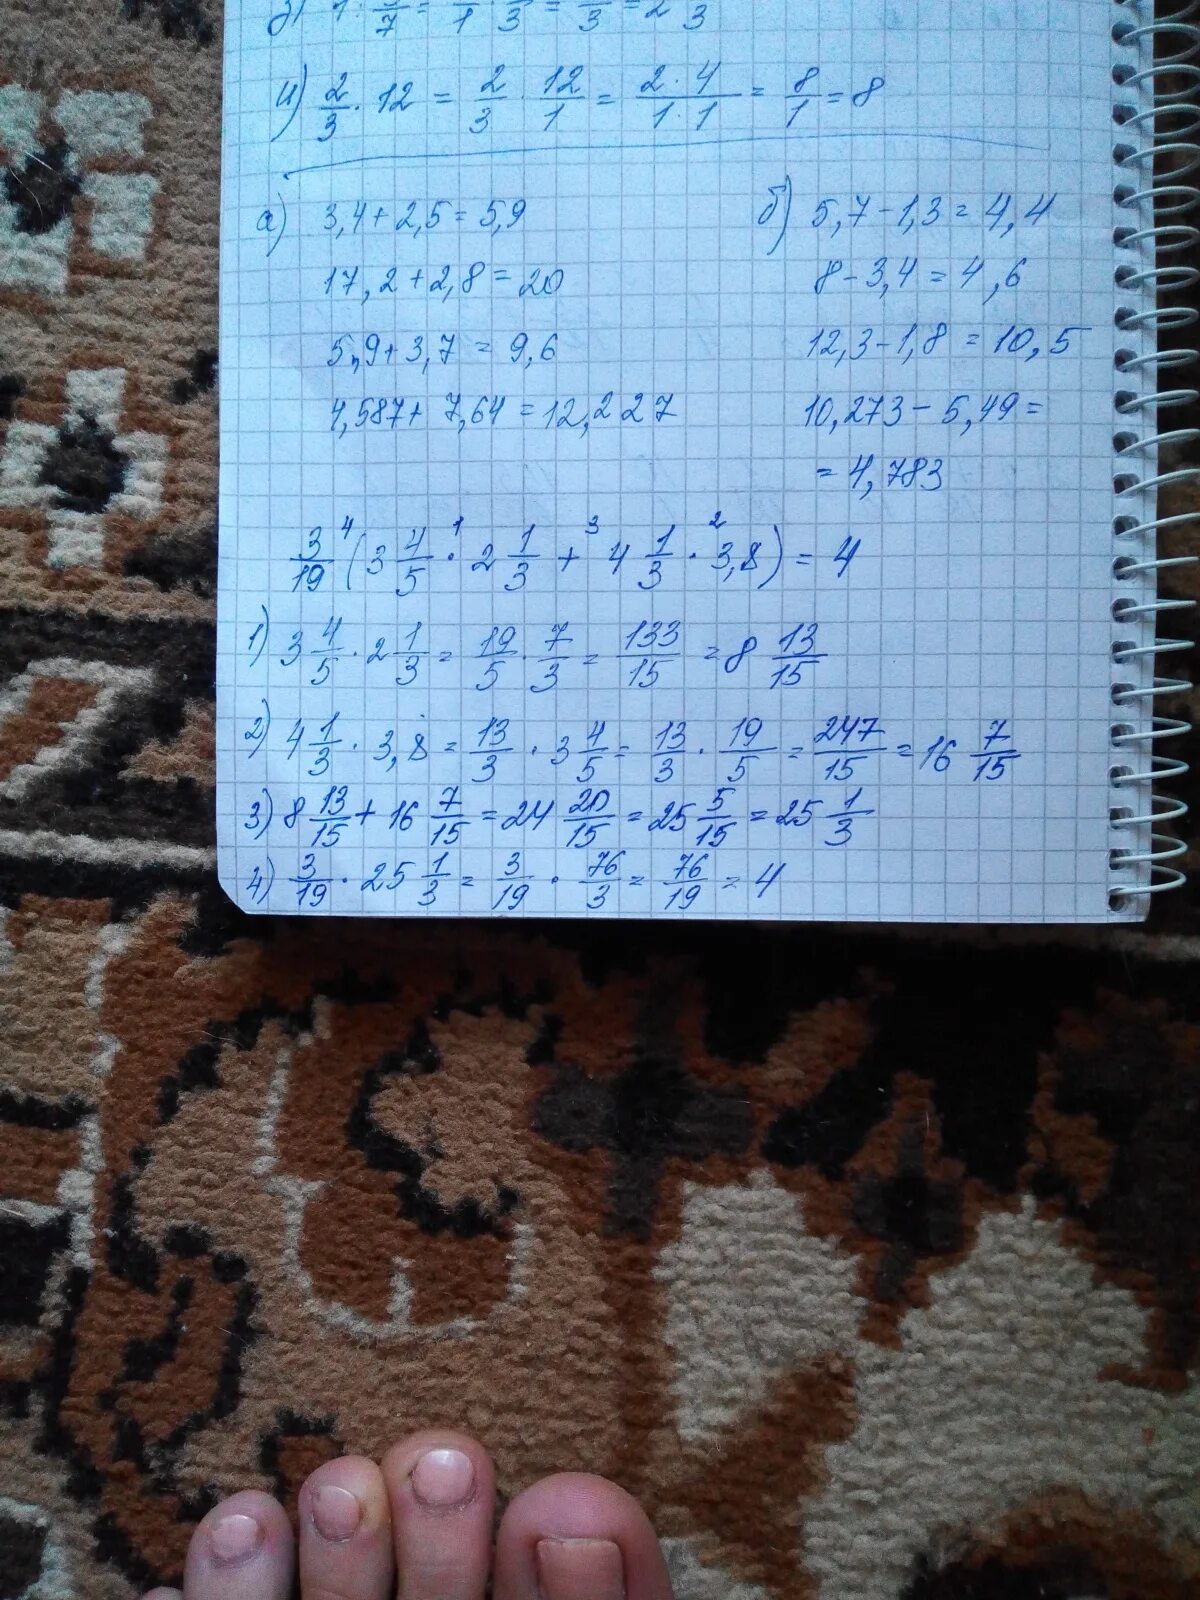 и) 2/3 · 12 = 2/3 · 12/1 = 2 · 4/1 · 1 = 8/1 = 8
а) 3,4 + 2,5 = 5,9
17,2 + 2,8 = 20
5,9 + 3,7 = 9,6
4,587 + 7,64 = 12,227
б) 5,7 - 1,3 = 4,4
8 - 3,4 = 4,6
12,3 - 1,8 = 10,5
10,273 - 5,49 =
= 4,783
4 1 3 2
3/19 (3 4/5 · 2 1/3 + 4 1/3 · 3,8) = 4
1) 3 4/5 · 2 1/3 = 19/5 · 7/3 = 133/15 = 8 13/15
2) 4 1/3 · 3,8 = 13/3 · 3 4/5 = 13/3 · 19/5 = 247/15 = 16 7/15
3) 8 13/15 + 16 7/15 = 24 20/15 = 25 5/15 = 25 1/3
4) 3/19 · 25 1/3 = 3/19 · 76/3 = 76/19 = 4